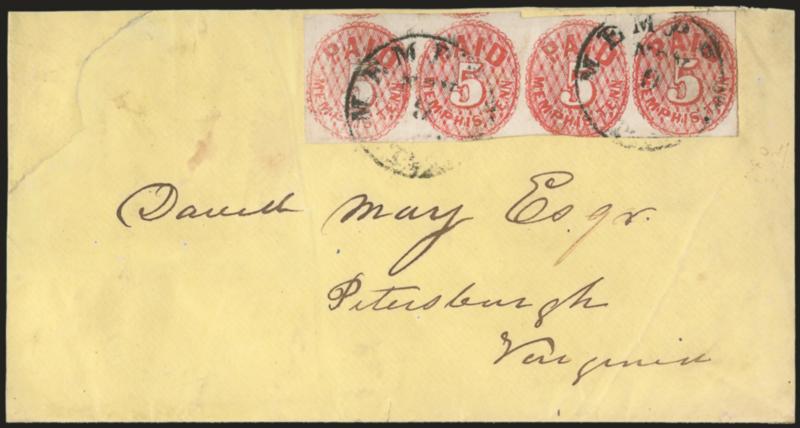 PAID 5 MEMPHIS, TENN. PAID 5 MEMPHIS, TENN. PAID 5 MEMPHIS, TENN. PAID 5 MEMPHIS, TENN.
David May Esqr.
Petersburgh
Virginia